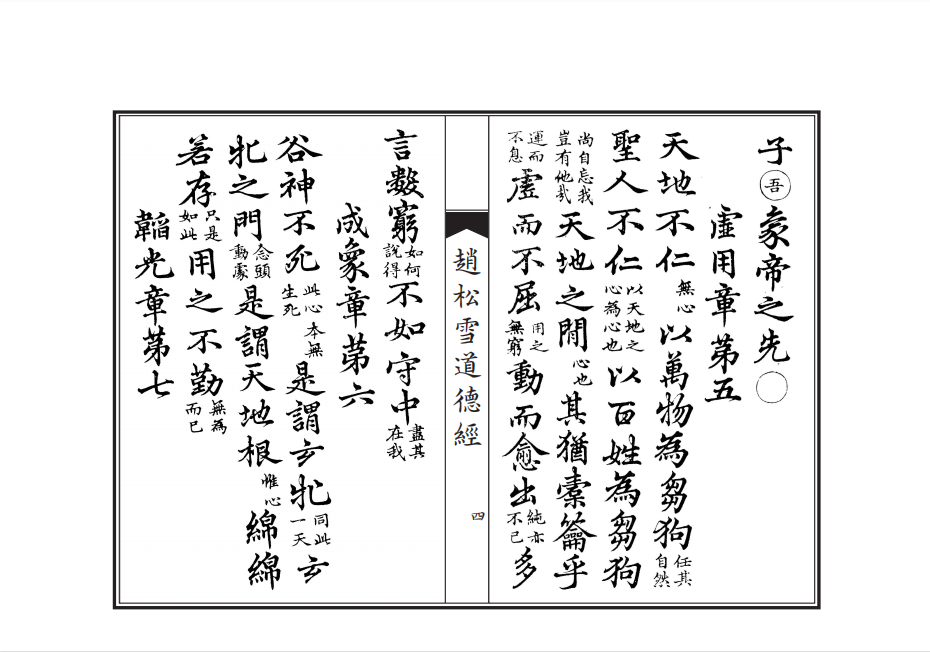 子吾象帝之先○
虛用章第五
天地不仁無心以萬物為芻狗任其自然
聖人不仁以天地之心為心也以百姓為芻狗
尚自忘我豈有他哉天地之間心也其猶橐籥乎
運而不息虛而不屈用之無窮動而愈出純亦不已多
趙松雪道德經
四
言數窮如何說得不如守中盡其在我
成象章第六
谷神不死此心本無生死是謂玄牝同此一天玄
牝之門念頭動處是謂天地根惟心綿綿
若存只是如此用之不勤無為而已
韜光章第七